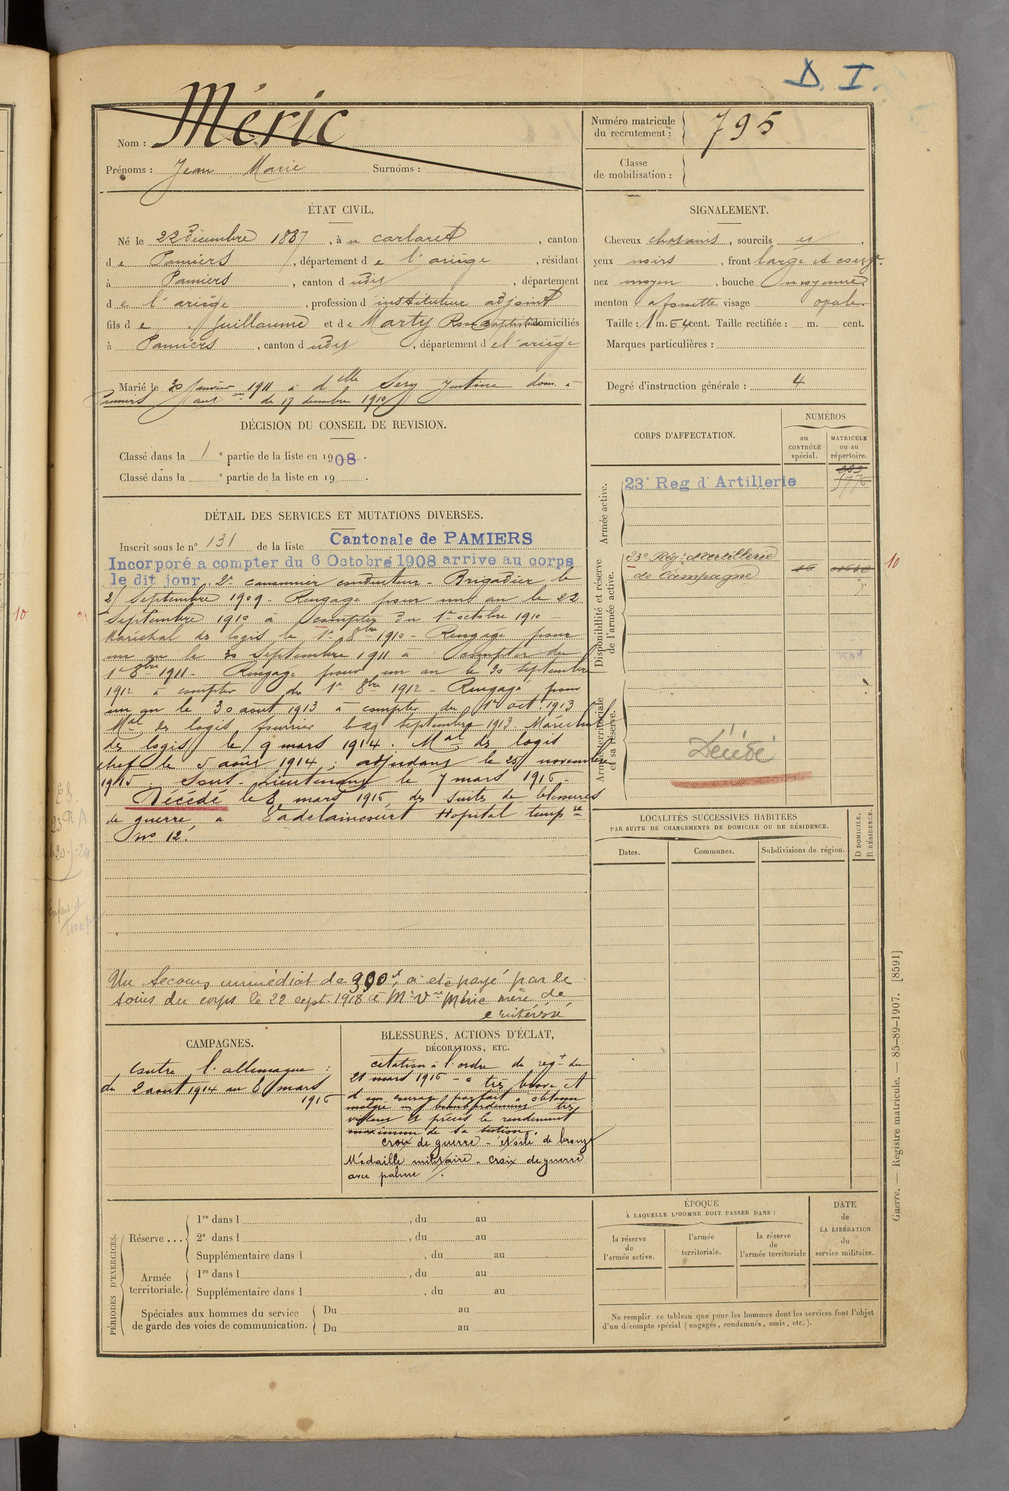 D. I.
Nom : Méric
Prénoms : Jean Marie Surnoms :
Numéro matricule du recrutement : 795
Classe de mobilisation :
ÉTAT CIVIL.
Né le 22 Décembre 1887, à Carlaret, canton
de Pamiers, département de l'ariège, résidant
à Pamiers, canton dudit, département
de l'ariège, profession d'instituteur adjoint
fils de Guillaume et de Marty domiciliés
à Pamiers, canton dudit, département de l'ariège
Marié le 30 Janvier 1911 à dlle Sery Justine dom. à
Pamiers aut. on de 17 décembre 1910
SIGNALEMENT.
Cheveux chatains, sourcils id,
yeux noirs, front large et
nez moyen, bouche moyenne
menton à fossette visage opale.
Taille : 1 m. 64 cent. Taille rectifiée : m. cent.
Marques particulières :
Degré d'instruction générale : 4
DÉCISION DU CONSEIL DE REVISION.
Classé dans la 1e partie de la liste en 1908.
Classé dans la e partie de la liste en 19 .
CORPS D'AFFECTATION.
NUMÉROS
au CONTRÔLE spécial.
MATRICULE ou au répertoire.
Armée active.
23e Reg d'Artillerie
Disponibilité et réserve de l'armée active.
23e Rég. d'Artillerie
de Campagne
16
10
Armée territoriale et sa réserve.
Décédé
DÉTAIL DES SERVICES ET MUTATIONS DIVERSES.
Inscrit sous le n° 131 de la liste Cantonale de PAMIERS
Incorporé a compter du 6 Octobre 1908 arrive au corps
le dit jour. 2e canonnier conducteur - Brigadier le
21 Septembre 1909 - Rengagé pour un an le 22
Septembre 1910 à compter du 1er octobre 1910 -
Maréchal des logis le 1er 8bre 1910 - Rengagé pour
un an le 30 Septembre 1911 à compter du
1er 8bre 1911 - Rengagé pour un an le 30 septembre
1912 à compter du 1er 8bre 1912 - Rengagé pour
un an le 30 aout 1913 à compter du 1er oct 1913
Mal des logis fourrier le 29 septembre 1913 Maréchal
des logis le 9 mars 1914. Mal des logis
chef le 5 août 1914, adjudant le 25 novembre
1915 - Sous-Lieutenant le 7 mars 1916 -
Décédé le 8 mars 1916 des suites de blessures
de guerre à Vadelaincourt Hopital tempre
no 12.
Un Secours immédiat de 300f a été payé par le
soins du corps le 22 sept. 1918 à Me Vve Méric mère de
l'intéressé
LOCALITÉS SUCCESSIVES HABITÉES
PAR SUITE DE CHANGEMENTS DE DOMICILE OU DE RÉSIDENCE.
Dates.
Communes.
Subdivisions de région.
D DOMICILE.
R RÉSIDENCE.
CAMPAGNES.
Contre l'allemagne :
du 2 aout 1914 au 8 mars
1916
BLESSURES, ACTIONS D'ÉCLAT,
DÉCORATIONS, ETC.
Citation à l'ordre du régt du
21 mars 1916 - très brave et
d'un courage parfait a obtenu
malgré un bombardement très
violent et précis le rendement
maximum de sa section.
Croix de guerre - étoile de bronze
Médaille militaire - croix de guerre
avec palme
PÉRIODES D'EXERCICES.
Réserve ...
1re dans l , du au
2e dans l , du au
Supplémentaire dans l , du au
Armée territoriale.
1re dans l , du au
Supplémentaire dans l , du au
Spéciales aux hommes du service
de garde des voies de communication.
Du au
Du au
ÉPOQUE
À LAQUELLE L'HOMME DOIT PASSER DANS :
la réserve de l'armée active.
l'armée territoriale.
la réserve de l'armée territoriale
DATE de LA LIBÉRATION du service militaire.
Ne remplir ce tableau que pour les hommes dont les services font l'objet
d'un décompte spécial (engagés, condamnés, omis, etc.).
Guerre. — Registre matricule. — 85-89-1907. [8591]
10